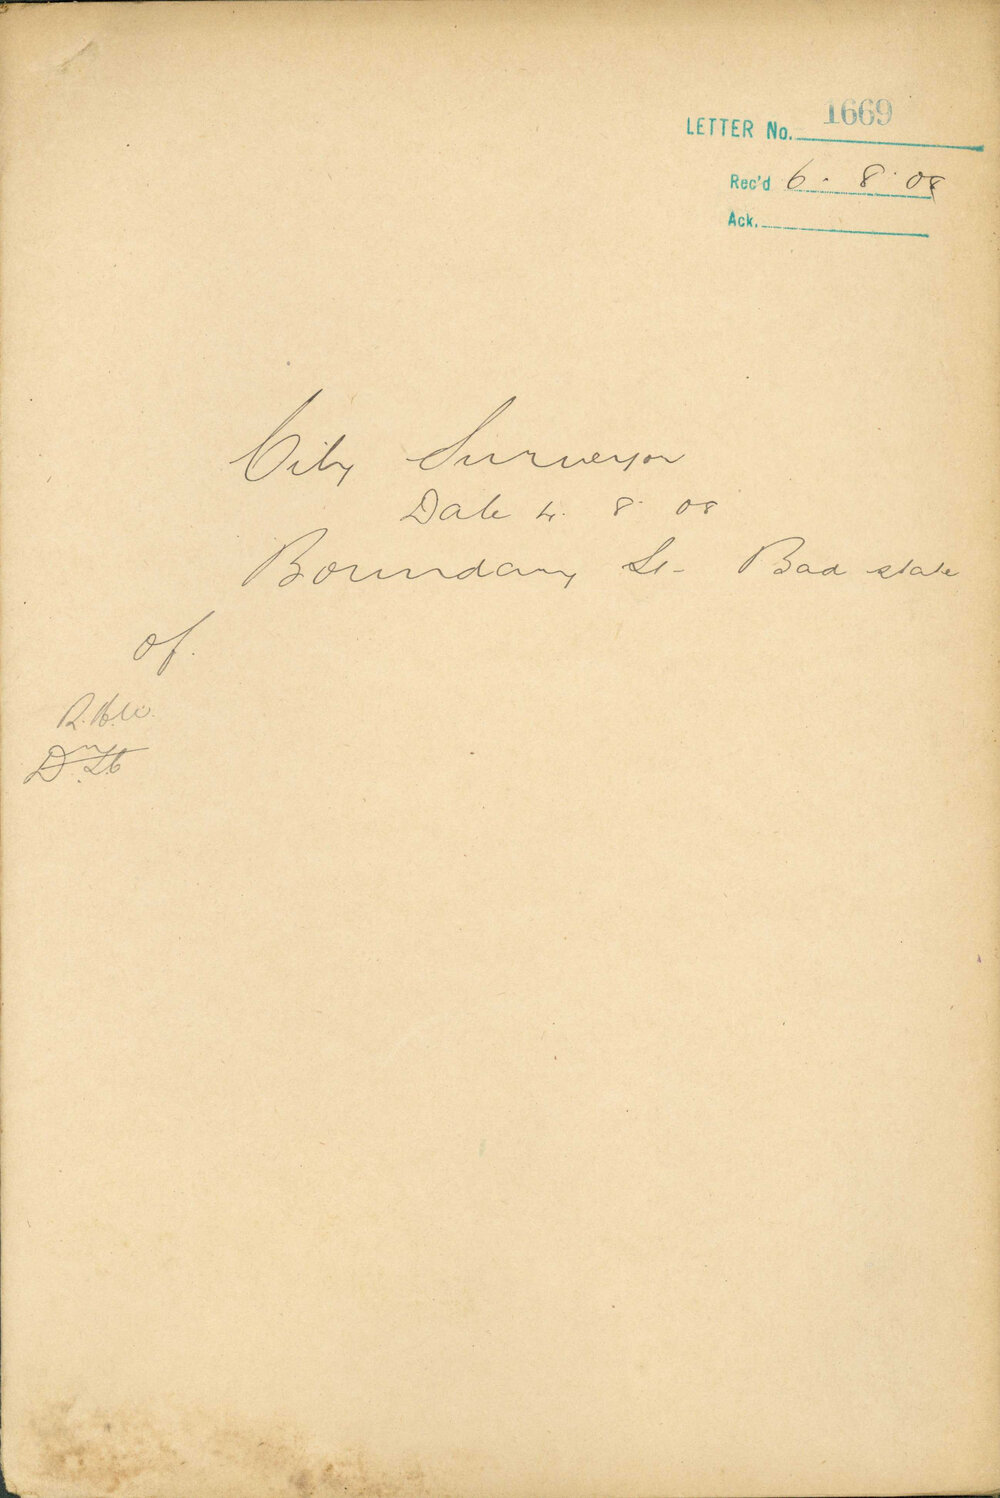 LETTER No. 1669
Rec'd 6. 8. 08
Ack.
City Surveyor
Date 4. 8. 08
Boundary St- Bad state
of.